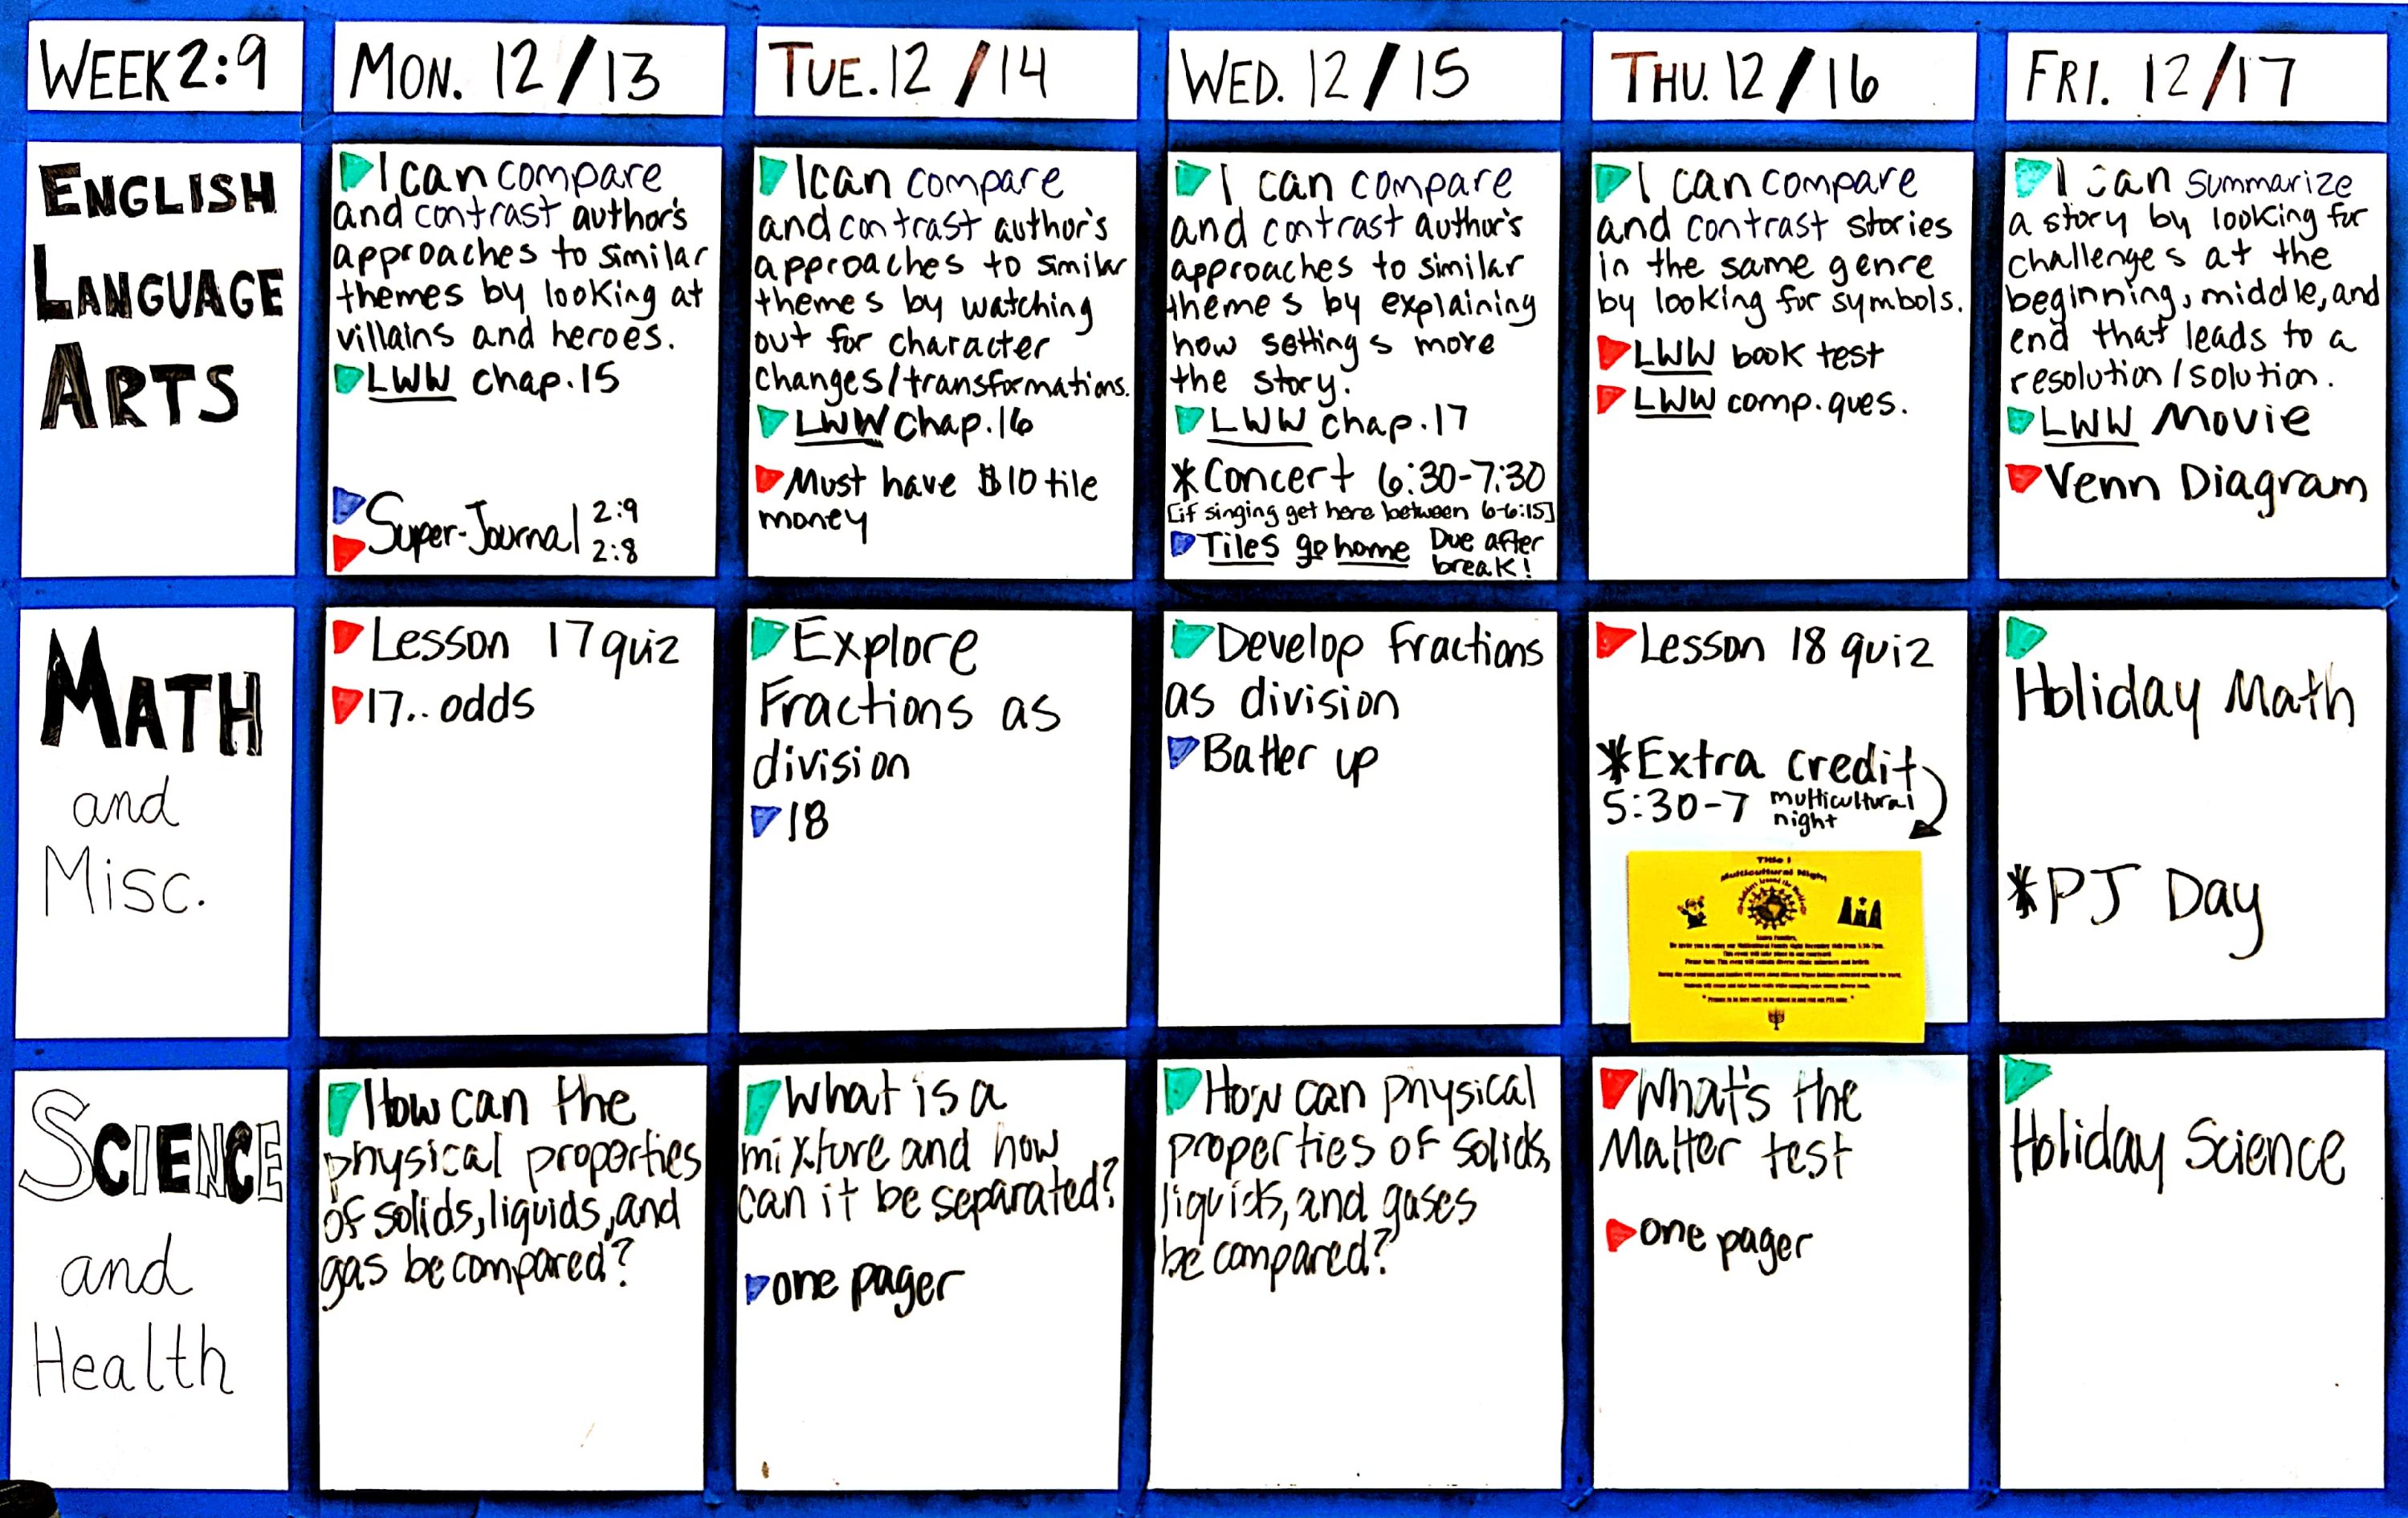 WEEK 2:9
MON. 12/13
TUE. 12/14
WED. 12/15
THU. 12/16
FRI. 12/17
ENGLISH
LANGUAGE
ARTS
I can compare
and contrast author's
approaches to similar
themes by looking at
villains and heroes.
LWW chap. 15
Super-Journal 2:9
2:8
I can compare
and contrast author's
approaches to similar
themes by watching
out for character
changes/transformations.
LWW chap. 16
Must have $10 tile
money
I can compare
and contrast author's
approaches to similar
themes by explaining
how settings more
the story.
LWW chap. 17
*Concert 6:30-7:30
[if singing get here between 6-6:15]
Tiles go home Due after
break!
I can compare
and contrast stories
in the same genre
by looking for symbols.
LWW book test
LWW comp. ques.
I can summarize
a story by looking for
challenges at the
beginning, middle, and
end that leads to a
resolution/solution.
LWW Movie
Venn Diagram
MATH
and
Misc.
Lesson 17 quiz
17.. odds
Explore
Fractions as
division
18
Develop fractions
as division
Batter up
Lesson 18 quiz
*Extra credit
5:30-7 multicultural
night
Title I
Multicultural Night
Holiday Math
*PJ Day
SCIENCE
and
Health
How can the
physical properties
of solids, liquids, and
gas be compared?
What is a
mixture and how
can it be separated?
one pager
How can physical
properties of solids,
liquids, and gases
be compared?
What's the
Matter test
one pager
Holiday Science